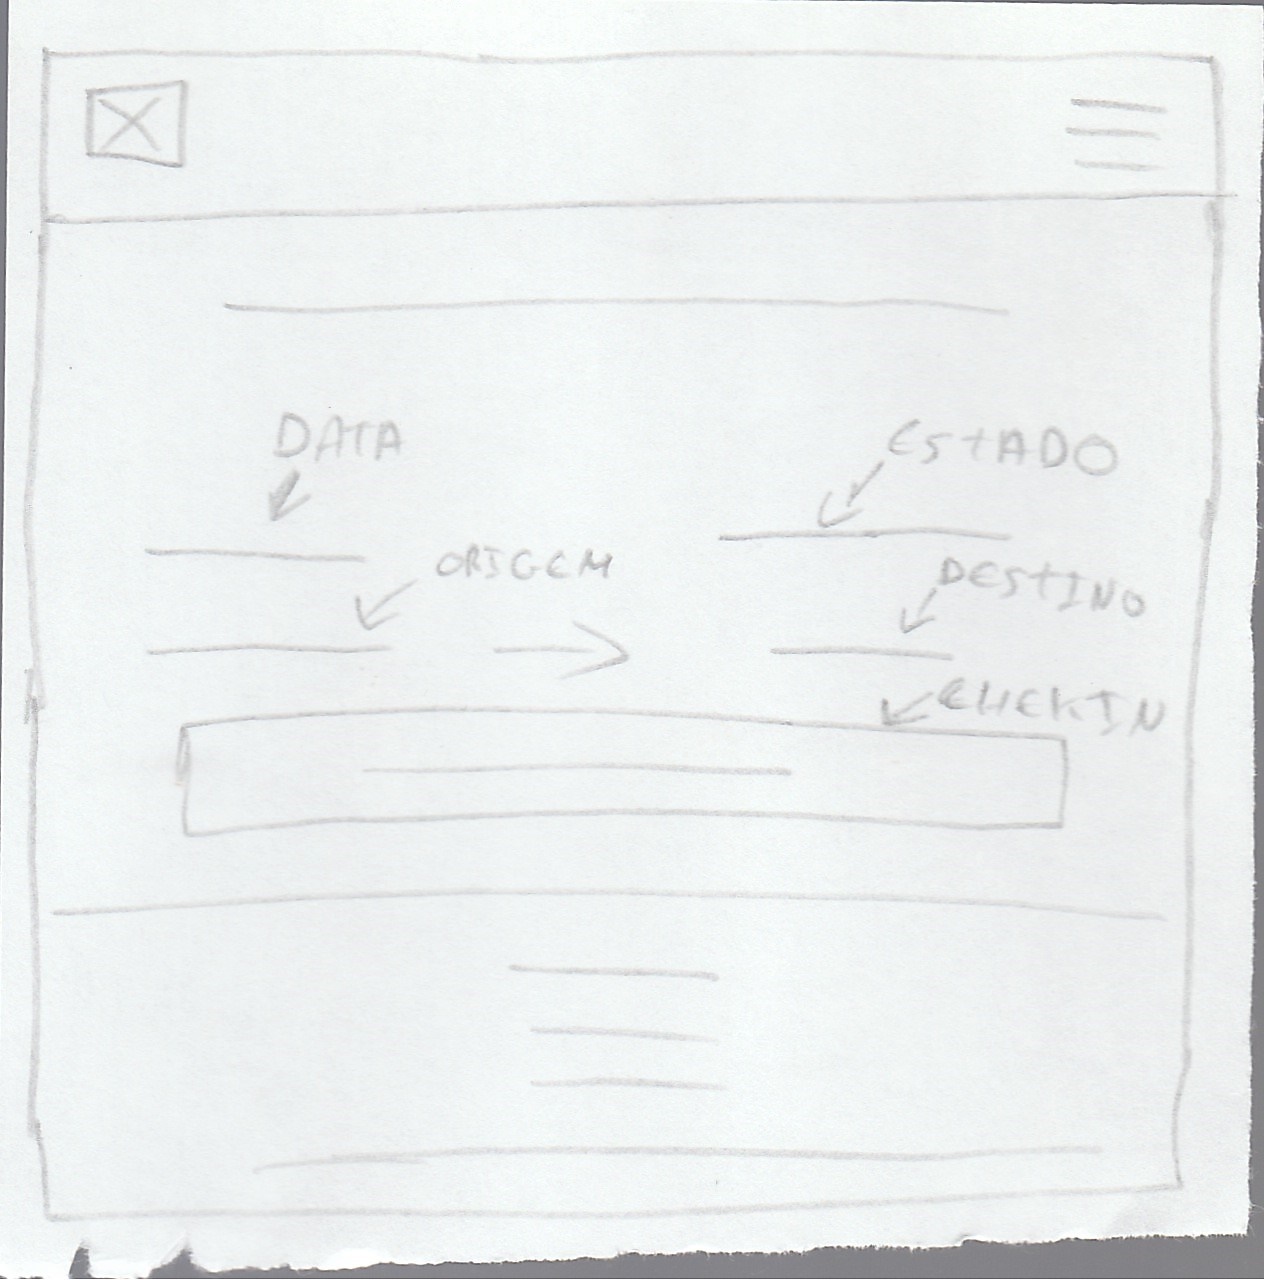 DATA
ESTADO
ORIGEM
DESTINO
CHEKIN